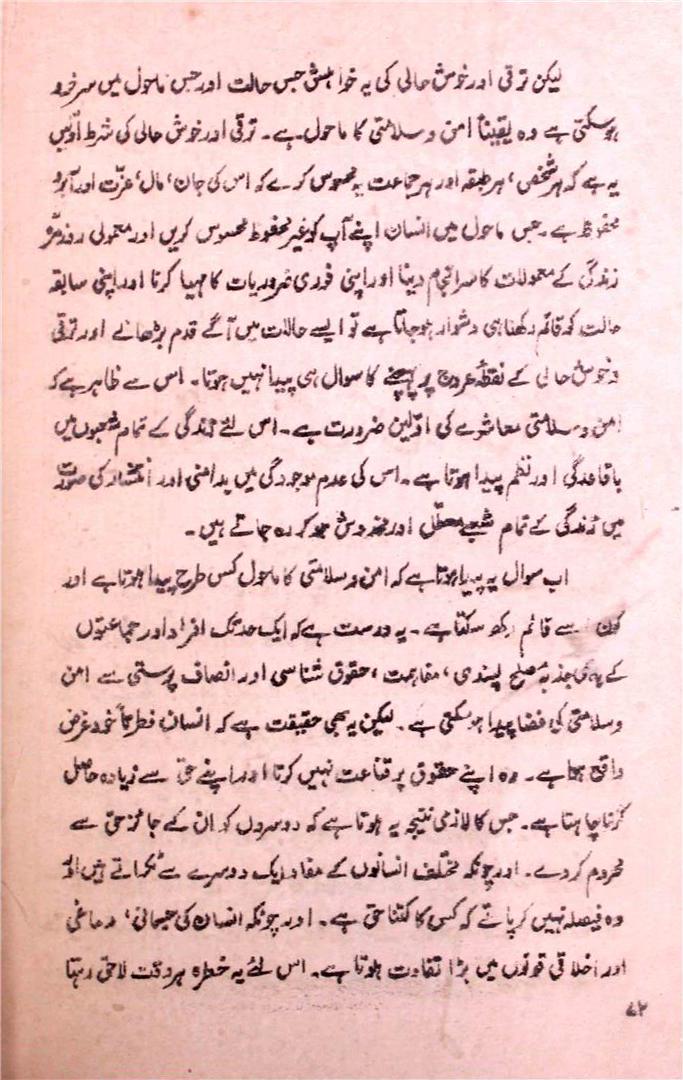 لیکن ترقی اور خوش حالی کی یہ خواہش جس حالت اور جس ماحول میں سرخرو
ہوسکتی ہے وہ یقیناً امن و سلامتی کا ماحول ہے۔ ترقی اور خوش حالی کی شرط اوّلیں
یہ ہے کہ ہر شخص، ہر طبقہ اور ہر جماعت یہ محسوس کرے کہ اس کی جان، مال، عزّت اور آبرو
محفوظ ہے۔ جس ماحول میں انسان اپنے آپ کو غیر محفوظ محسوس کریں اور معمولی روزمرّہ
زندگی کے معمولات کا سرانجام دینا اور اپنی فوری ضروریات کا مہیا کرنا اور اپنی سابقہ
حالت کو قائم رکھنا ہی دشوار ہوجاتا ہے تو ایسے حالات میں آگے قدم بڑھانے اور ترقی
و خوش حالی کے نقطۂ عروج پر پہنچنے کا سوال ہی پیدا نہیں ہوتا۔ اس سے ظاہر ہے کہ
امن و سلامتی معاشرے کی اوّلین ضرورت ہے۔ اس لئے زندگی کے تمام شعبوں میں
باقاعدگی اور نظم پیدا ہوتا ہے۔ اس کی عدم موجودگی میں بدامنی اور انتشار کی صورت
میں زندگی کے تمام شعبے معطّل اور مخدوش ہو کر رہ جاتے ہیں۔
اب سوال یہ پیدا ہوتا ہے کہ امن و سلامتی کا ماحول کس طرح پیدا ہوتا ہے اور
کون اسے قائم رکھ سکتا ہے۔ یہ درست ہے کہ ایک حد تک افراد اور جماعتوں
کے جذبۂ صلح پسندی، مفاہمت، حقوق شناسی اور انصاف پرستی سے امن
و سلامتی کی فضا پیدا ہوسکتی ہے۔ لیکن یہ بھی حقیقت ہے کہ انسان فطرتاً خود غرض
واقع ہوا ہے۔ وہ اپنے حقوق پر قناعت نہیں کرتا اور اپنے حق سے زیادہ حاصل
کرنا چاہتا ہے۔ جس کا لازمی نتیجہ یہ ہوتا ہے کہ دوسروں کو ان کے جائز حق سے
محروم کردے۔ اور چونکہ مختلف انسانوں کے مفاد ایک دوسرے سے ٹکراتے ہیں اور
وہ فیصلہ نہیں کر پاتے کہ کس کا کتنا حق ہے۔ اور چونکہ انسان کی جسمانی، دماغی
اور اخلاقی قوتوں میں بڑا تفاوت ہوتا ہے۔ اس لئے یہ خطرہ ہر وقت لاحق رہتا